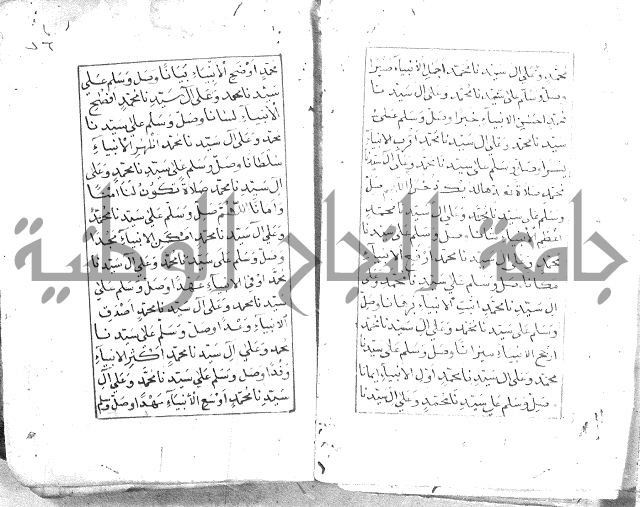 محمد وعلى ال سيدنا محمد اجمل الانبياء صبرا
وصل وسلم على سيدنا محمد وعلى ال سيدنا
محمد احسن الانبياء خبرا وصل وسلم على
سيدنا محمد وعلى ال سيدنا محمد اقرب الانبياء
يسرا وصل وسلم على سيدنا محمد وعلى ال سيدنا
محمد صلاة صل
وسلم على سيدنا محمد وعلى ال سيدنا محمد
وصل وسلم على سيدنا
محمد وعلى ال سيدنا محمد الانبياء
مكانا وصل وسلم على سيدنا محمد وعلى
ال سيدنا محمد اثبت الانبياء برهانا وصل
وسلم على سيدنا محمد وعلى ال سيدنا محمد
ارجح الانبياء ميزانا وصل وسلم على سيدنا
محمد وعلى ال سيدنا محمد اول الانبياء ايمانا
وصل وسلم على سيدنا محمد وعلى ال سيدنا
٨٦
محمد اوضح الانبياء بيانا وصل وسلم على
سيدنا محمد وعلى ال سيدنا محمد افصح
الانبياء لسانا وصل وسلم على سيدنا
محمد وعلى ال سيدنا محمد اظهر الانبياء
سلطانا وصل وسلم على سيدنا محمد وعلى
ال سيدنا محمد صلاة تكون لنا امنا
وامانا اللهم صل وسلم على سيدنا محمد
وعلى ال سيدنا محمد الانبياء مجدا
وصل وسلم على سيدنا محمد وعلى ال سيدنا
محمد اوفى الانبياء عهدا وصل وسلم على
سيدنا محمد وعلى ال سيدنا محمد اصدق
الانبياء وعدا وصل وسلم على سيدنا
محمد وعلى ال سيدنا محمد اكثر الانبياء
وفدا وصل وسلم على سيدنا محمد وعلى ال
سيدنا محمد اوسع الانبياء مهدا وصل وسلم
جامعة النجاح الوطنية